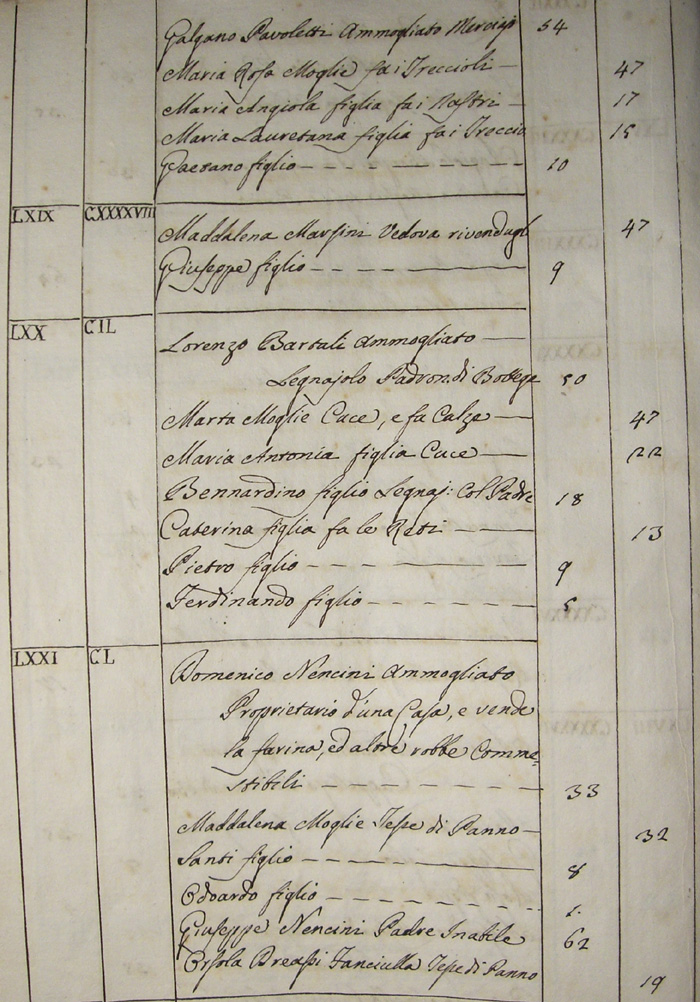 Galgano Pavoletti Ammogliato Merciajo 54
Maria Rosa Moglie fa i Treccioli 47
Maria Angiola figlia fa i Nastri 17
Maria Lauretana figlia fa i Treccio 15
Gaetano figlio 10
LXIX CXXXXVIII
Maddalena Marsini Vedova rivendugl 47
Giuseppe figlio 9
LXX CIL
Lorenzo Bartali Ammogliato
Legnajolo Padron di Bottega 50
Marta Moglie Cuce, e fa Calze 47
Maria Antonia figlia Cuce 22
Bennardino figlio Legnaj: Col Padre 18
Caterina figlia fa le Reti 13
Pietro figlio 9
Ferdinando figlio 5
LXXI CL
Domenico Nencini Ammogliato
Proprietario d'una Casa, e vende
la farina, ed altre robbe Comme,
stibili 33
Maddalena Moglie Tesse di Panno 32
Santi figlio 8
Odoardo figlio 1.
Giuseppe Nencini Padre Inabile 62
Orsola Fanciulla Tesse di Panno 19